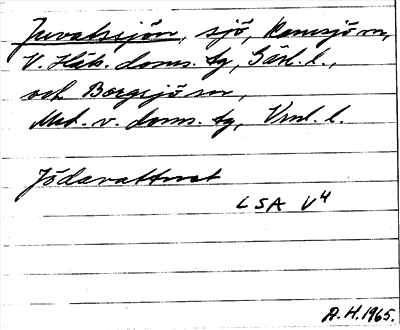 Juvatssjön, sjö, Ramsjö sn,
V. Häls. doms. tg, Gävl. l.,
och Borgsjö sn,
Med. v. doms. tg, Vnl. l.
Jödavattnet
LSA V4
A.H. 1965.